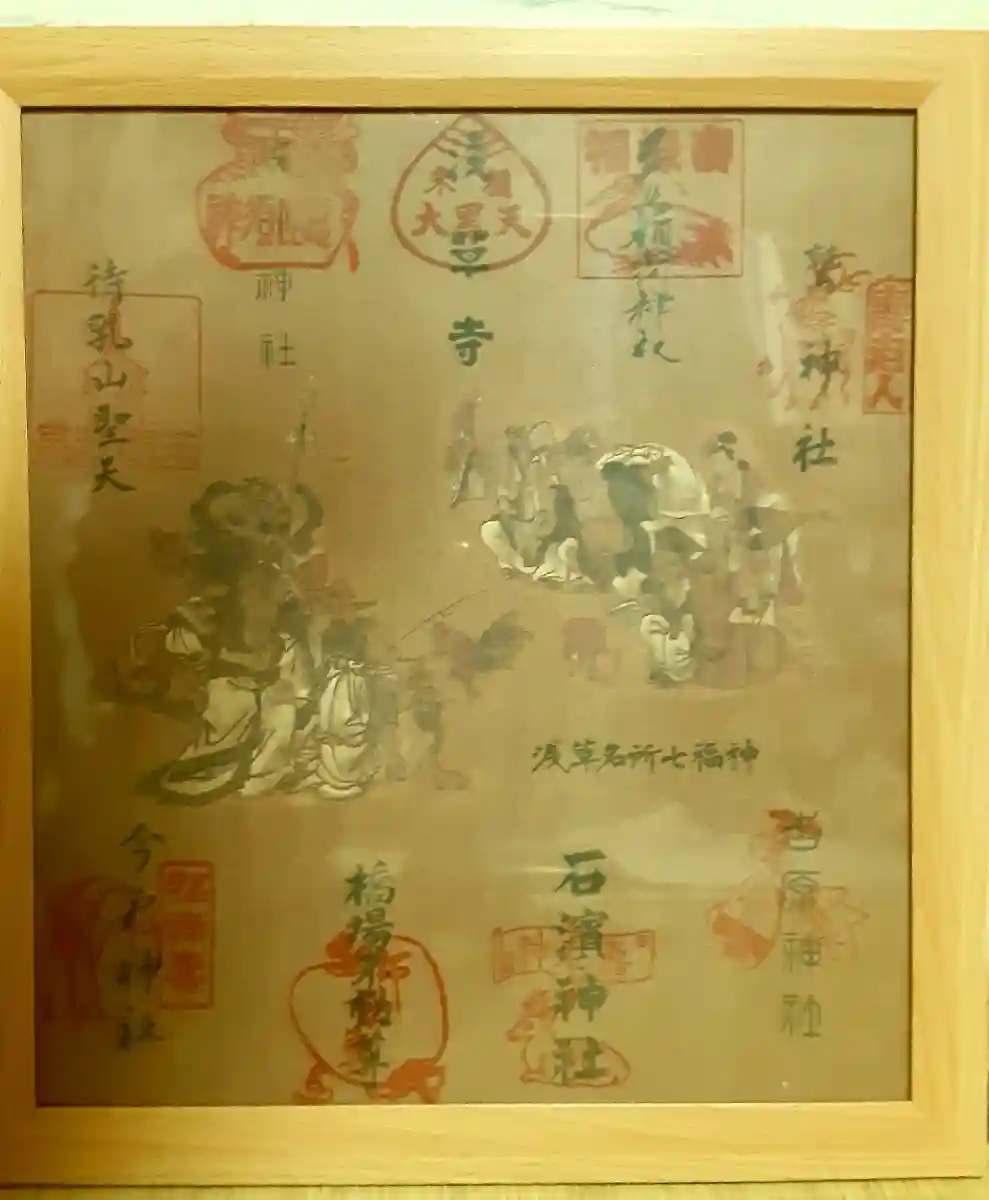 鷲神社
寿老人
矢先稲荷神社
浅草寺
米櫃
大黒天
神社
待乳山聖天
浅草名所七福神
吉原神社
石濱神社
橋場不動尊
今戸神社